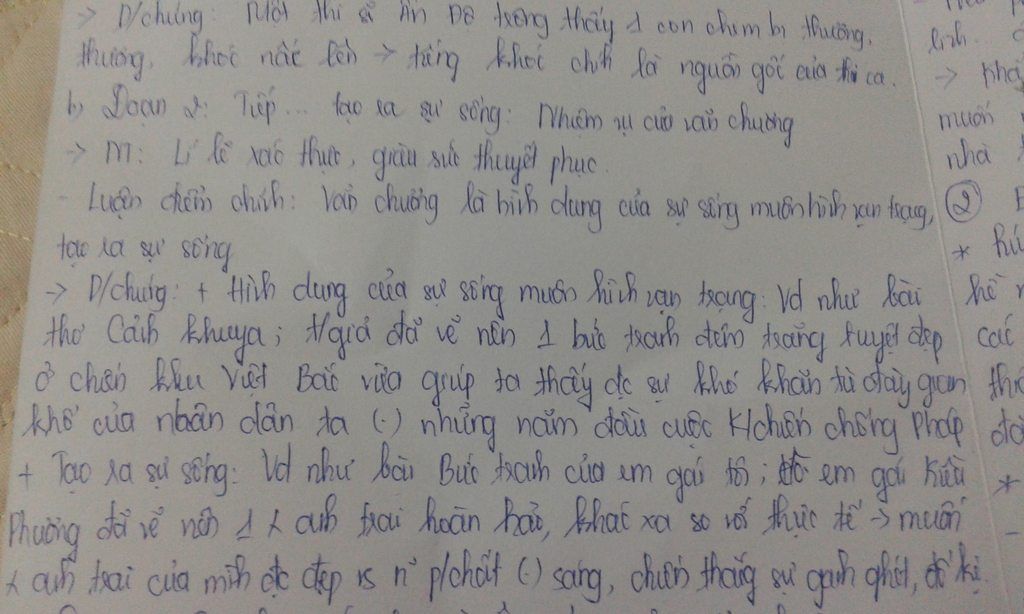 → D/chứng: Một thi sĩ Ấn Độ trông thấy 1 con chim bị thương,
thương, khóc nấc lên → tiếng khóc chính là nguồn gốc của thi ca.
b) Đoạn 2: Tiếp... tạo ra sự sống: Nhiệm vụ của văn chương
→ M: Lí lẽ xác thực, giàu sức thuyết phục.
- Luận điểm chính: Văn chương là hình dung của sự sống muôn hình vạn trạng,
tạo ra sự sống
→ D/chứng: + Hình dung của sự sống muôn hình vạn trạng: Vd như bài
thơ Cảnh khuya; t/giả đã vẽ nên 1 bức tranh đêm trăng tuyệt đẹp
ở chiến khu Việt Bắc vừa giúp ta thấy đc sự khó khăn tù đày gian
khổ của nhân dân ta (.) những năm đầu cuộc k/chiến chống Pháp
+ Tạo ra sự sống: Vd như bài Bức tranh của em gái tôi; em gái Kiều
Phương đã vẽ nên 1 anh trai hoàn hảo, khác xa so với thực tế → muốn
anh trai của mình đc đẹp n p/chất (.) sáng, chiến thắng sự ganh ghét, đố kị.
linh.
→ khá
muốn
nhà
②
*
hề
các
*
-